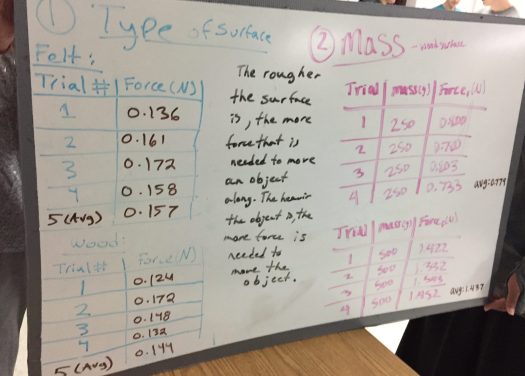 ① Type of Surface
Felt:
Trial # Force(N)
1 0.136
2 0.161
3 0.172
4 0.158
5 (Avg) 0.157
Wood:
Trial # Force(N)
1 0.124
2 0.172
3 0.148
4 0.132
5 (Avg) 0.144
The rougher
the surface
is, the more
force that is
needed to move
an object
along. The heavier
the object is, the
more force is
needed to
move the
object.
② Mass - wood surface
Trial mass(g) Force (N)
1 250 0.800
2 250
3 250 0.803
4 250 0.733
avg: 0.774
Trial mass(g) Force(N)
1 500 1.422
2 500
3 500
4 500
avg: 1.437